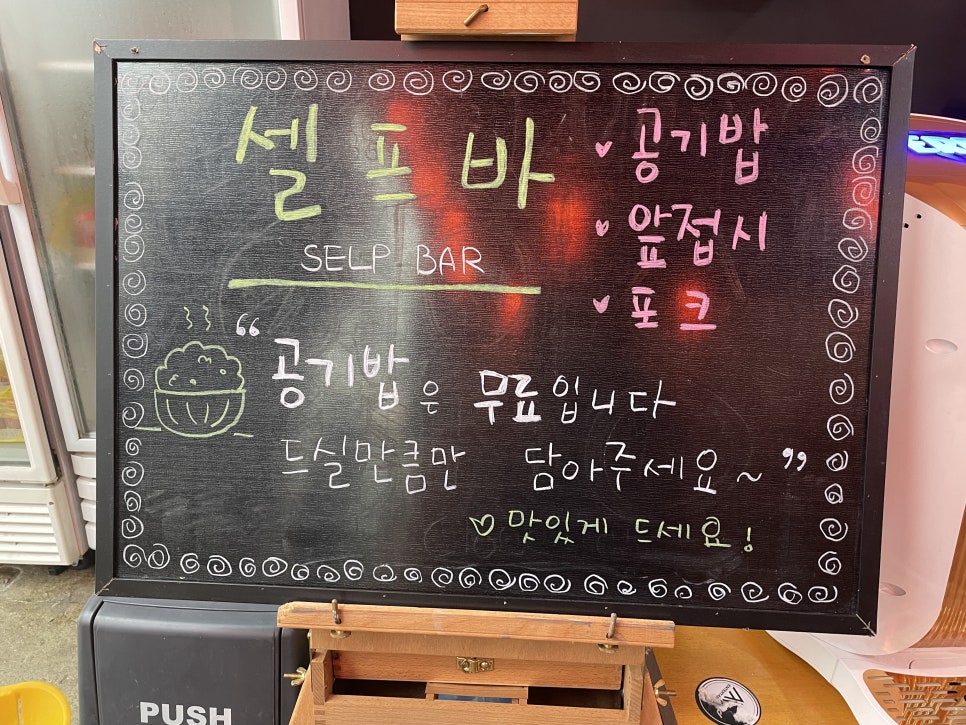 셀프바
SELP BAR
♥ 공기밥
♥ 앞접시
♥ 포크
“ 공기밥은 무료입니다
드실만큼만 담아주세요~ ”
♡ 맛있게 드세요!
PUSH